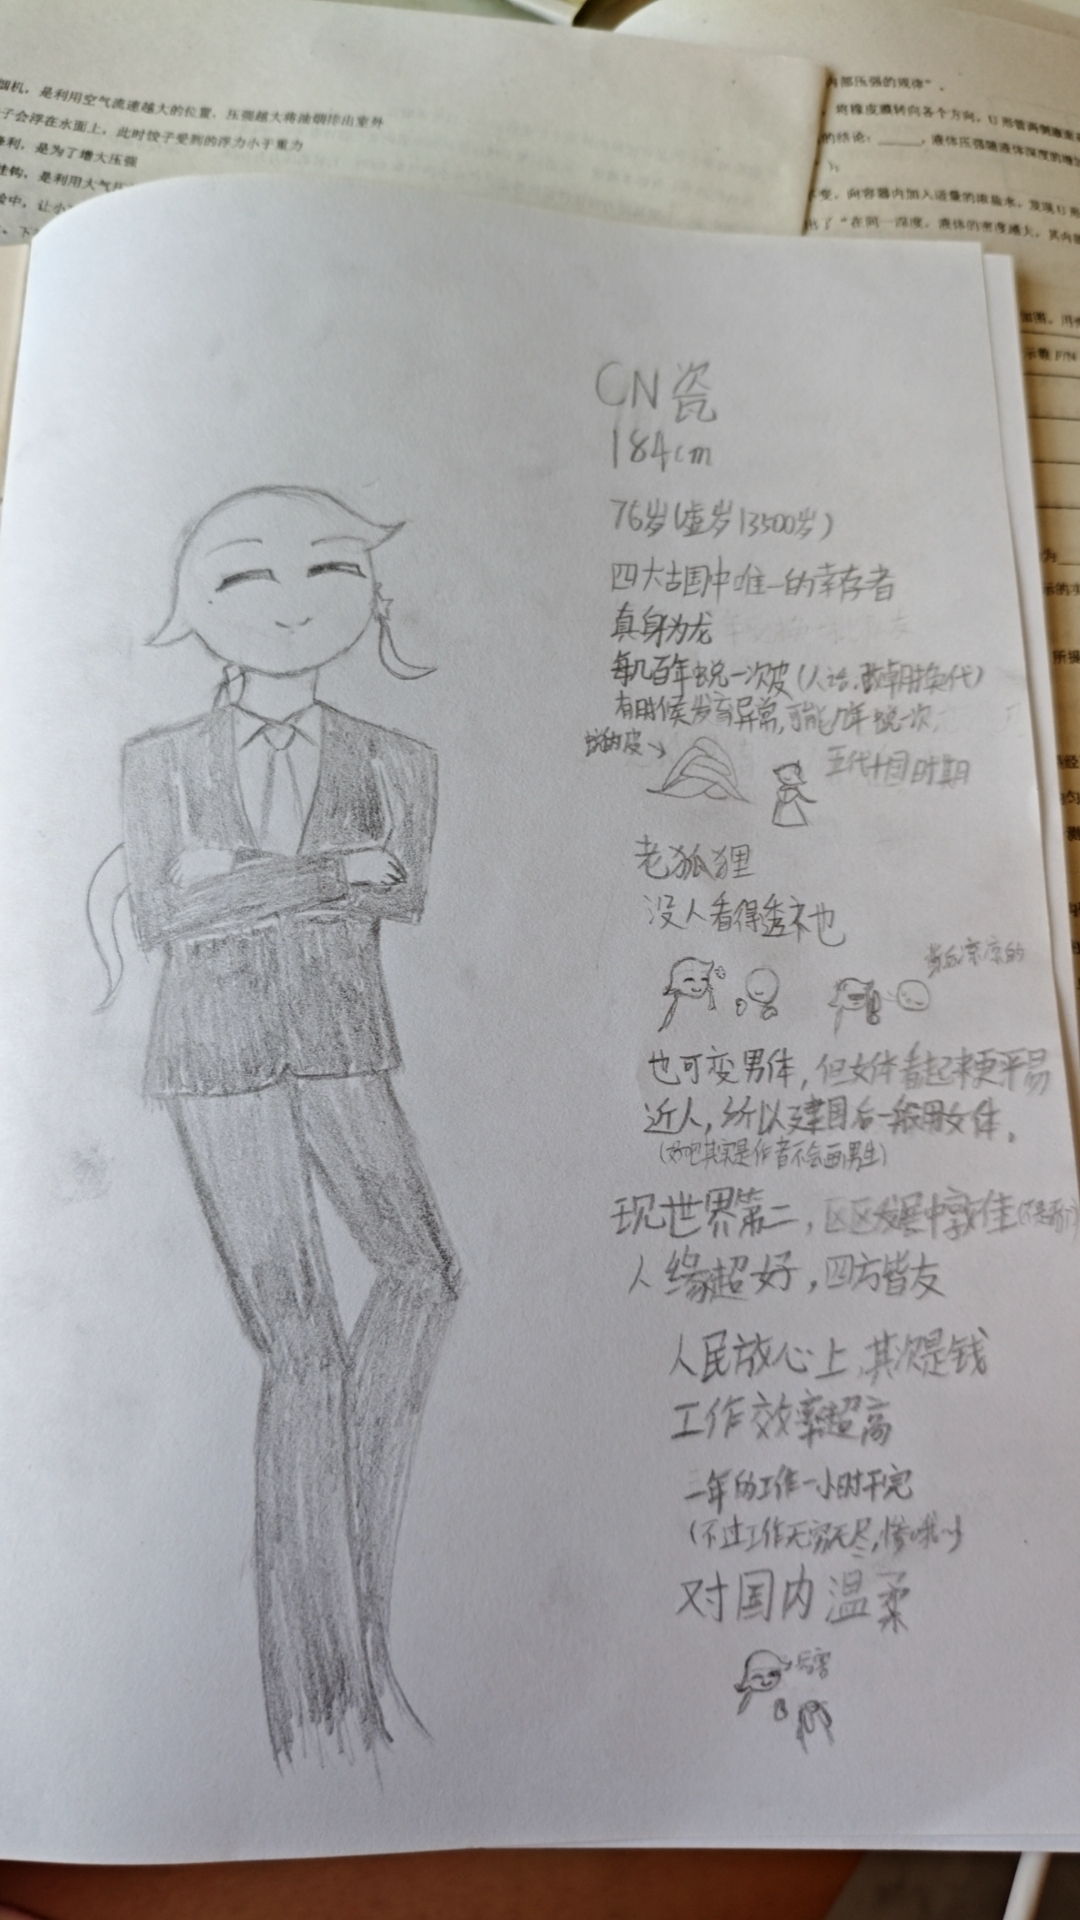 烟机，是利用空气流速越大的位置，压强越大将油烟排出室外
子会浮在水面上，此时饺子受到的浮力小于重力
利，是为了增大压强
挂钩，是利用大气压
验中，让小
内部压强的规律"。
将橡皮膜转向各个方向，U形管两侧液面
的结论：_____，液体压强随液体深度的增加
变，向容器内加入适量的浓盐水，发现U形
出了"在同一深度，液体的密度越大，其内部
CN瓷
184cm
76岁(虚岁13500岁)
四大古国中唯一的幸存者
真身为龙
每几百年蜕一次皮(人话:改朝换代)
有时候发育异常,可能几年蜕一次
蜕的皮
五代十国时期
老狐狸
没人看得透祂
也可变男体,但女体看起来更平易
近人,所以建国后一般用女体。
(好吧其实是作者不会画男生)
现世界第二,区区发展中
人缘超好,四方皆友
人民放心上,其次是钱
工作效率超高
三年的工作一小时干完
(不过工作无穷无尽,惨哦~)
对国内温柔